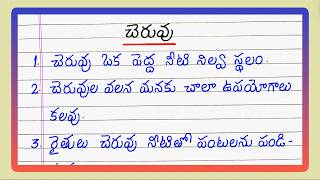 చెరువు
1. చెరువు ఒక పెద్ద నీటి నిల్వ స్థలం.
2. చెరువుల వలన మనకు చాలా ఉపయోగాలు
కలవు.
3. రైతులు చెరువు నీటితో పంటలను పండి-